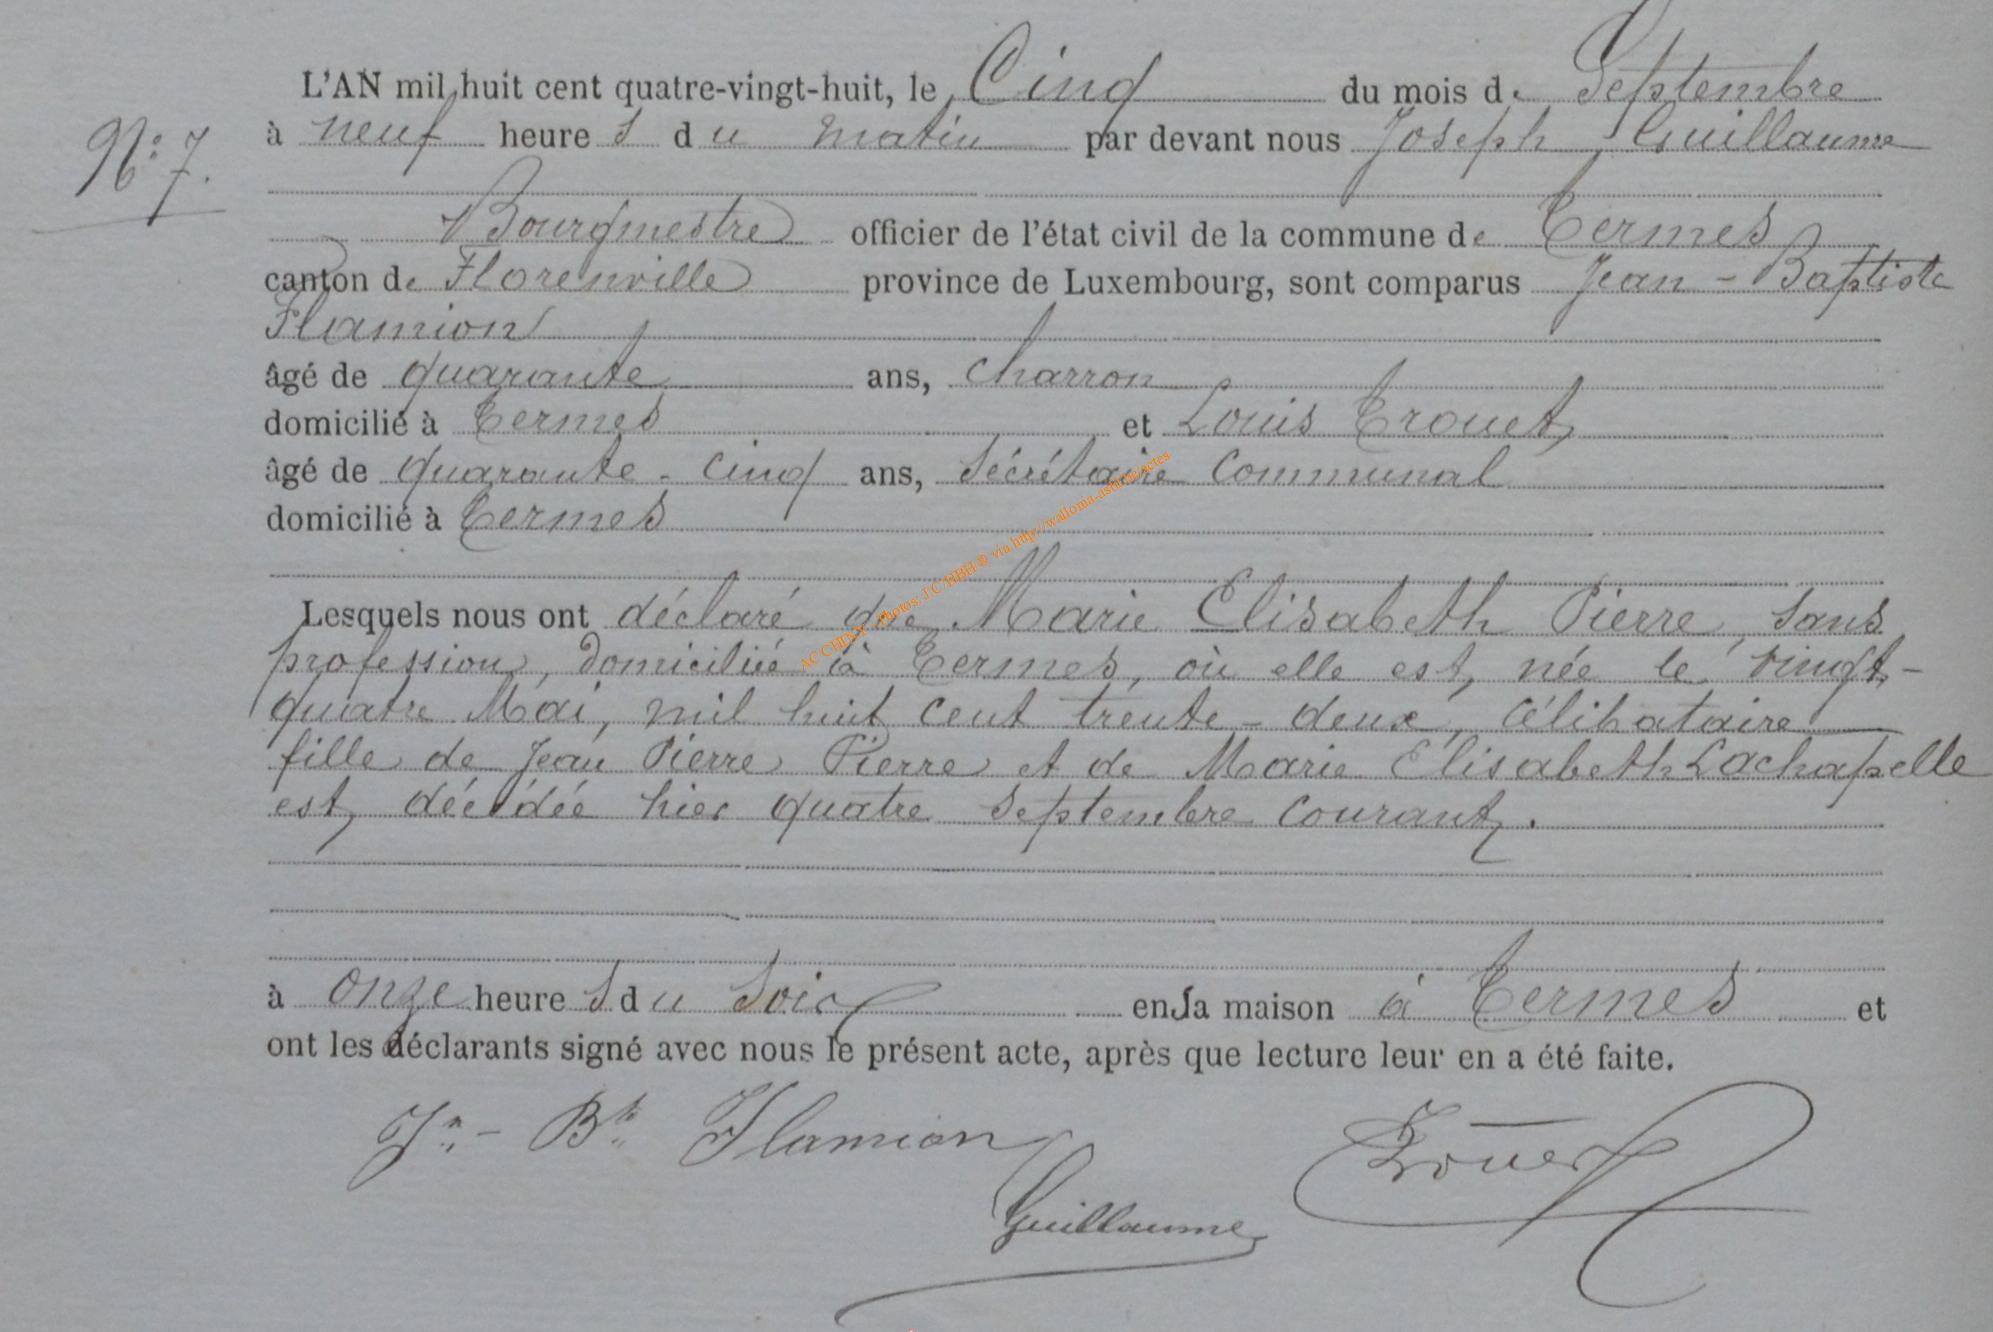 L'AN mil huit cent quatre-vingt-huit, le Cinq du mois de Septembre
N° 7.
à neuf heures du matin par devant nous Joseph Guillaume
Bourgmestre officier de l'état civil de la commune de Termes
canton de Florenville province de Luxembourg, sont comparus Jean-Baptiste
Flamion
âgé de quarante ans, charron
domicilié à Termes et Louis Trouet,
âgé de quarante-cinq ans, Sécrétaire Communal
domicilié à Termes
Lesquels nous ont déclaré que Marie Elisabeth Pierre, sans
profession, domiciliée à Termes, où elle est, née le vingt-
quatre Mai, mil huit cent trente-deux, célibataire
fille de Jean Pierre Pierre et de Marie Elisabeth Lachapelle
est, décédée hier quatre Septembre courant.
à onze heures du soir en la maison à Termes et
ont les déclarants signé avec nous le présent acte, après que lecture leur en a été faite.
Jn-Bte Flamion
Trouet
Guillaume
AC CHINY Photos: J.C. HBH ® via http://wallonia-asbl.be/actes